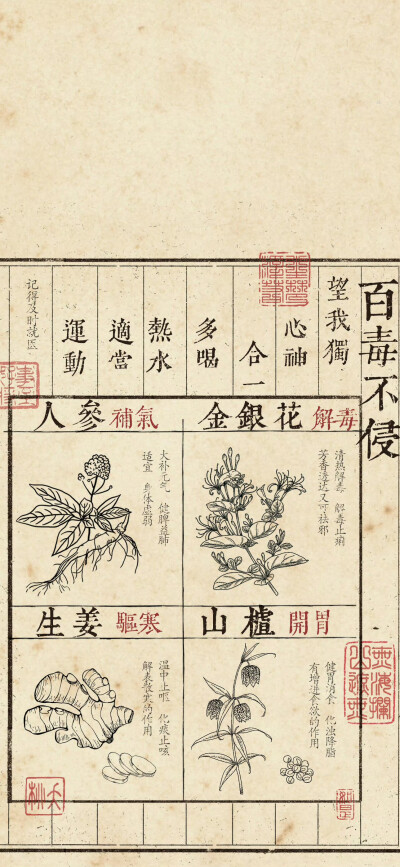 百毒不侵
望我獨
心神
合一
多喝
熱水
適當
運動
记得及时就医
金銀花 解毒
清热解毒 解毒止痢
芳香透达又可祛邪
人參 補氣
大补元气 健脾益肺
适宜 身体虚弱
山櫨 開胃
健胃消食 化浊降脂
有增进食欲的作用
生姜 驅寒
温中止呕 化痰止咳
解表散寒的作用